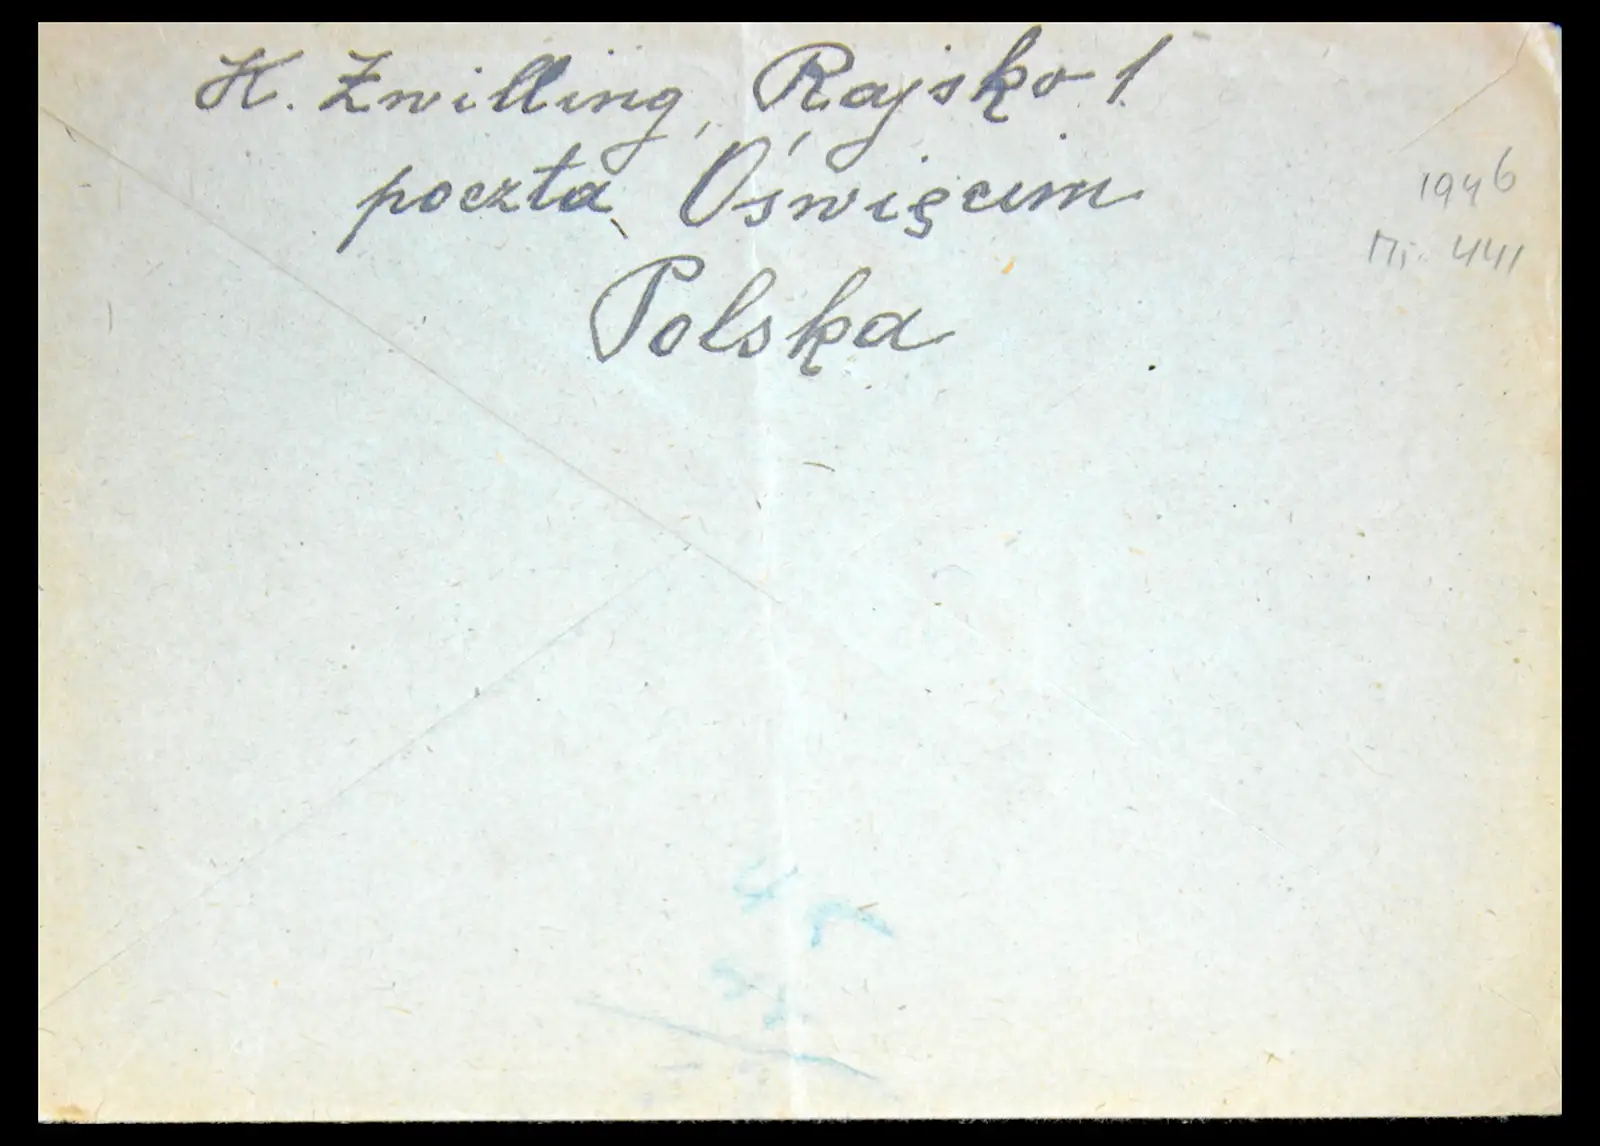 H. Zwilling, Rajsko 1.
poczta Oświęcim
Polska
1946
Mi. 441